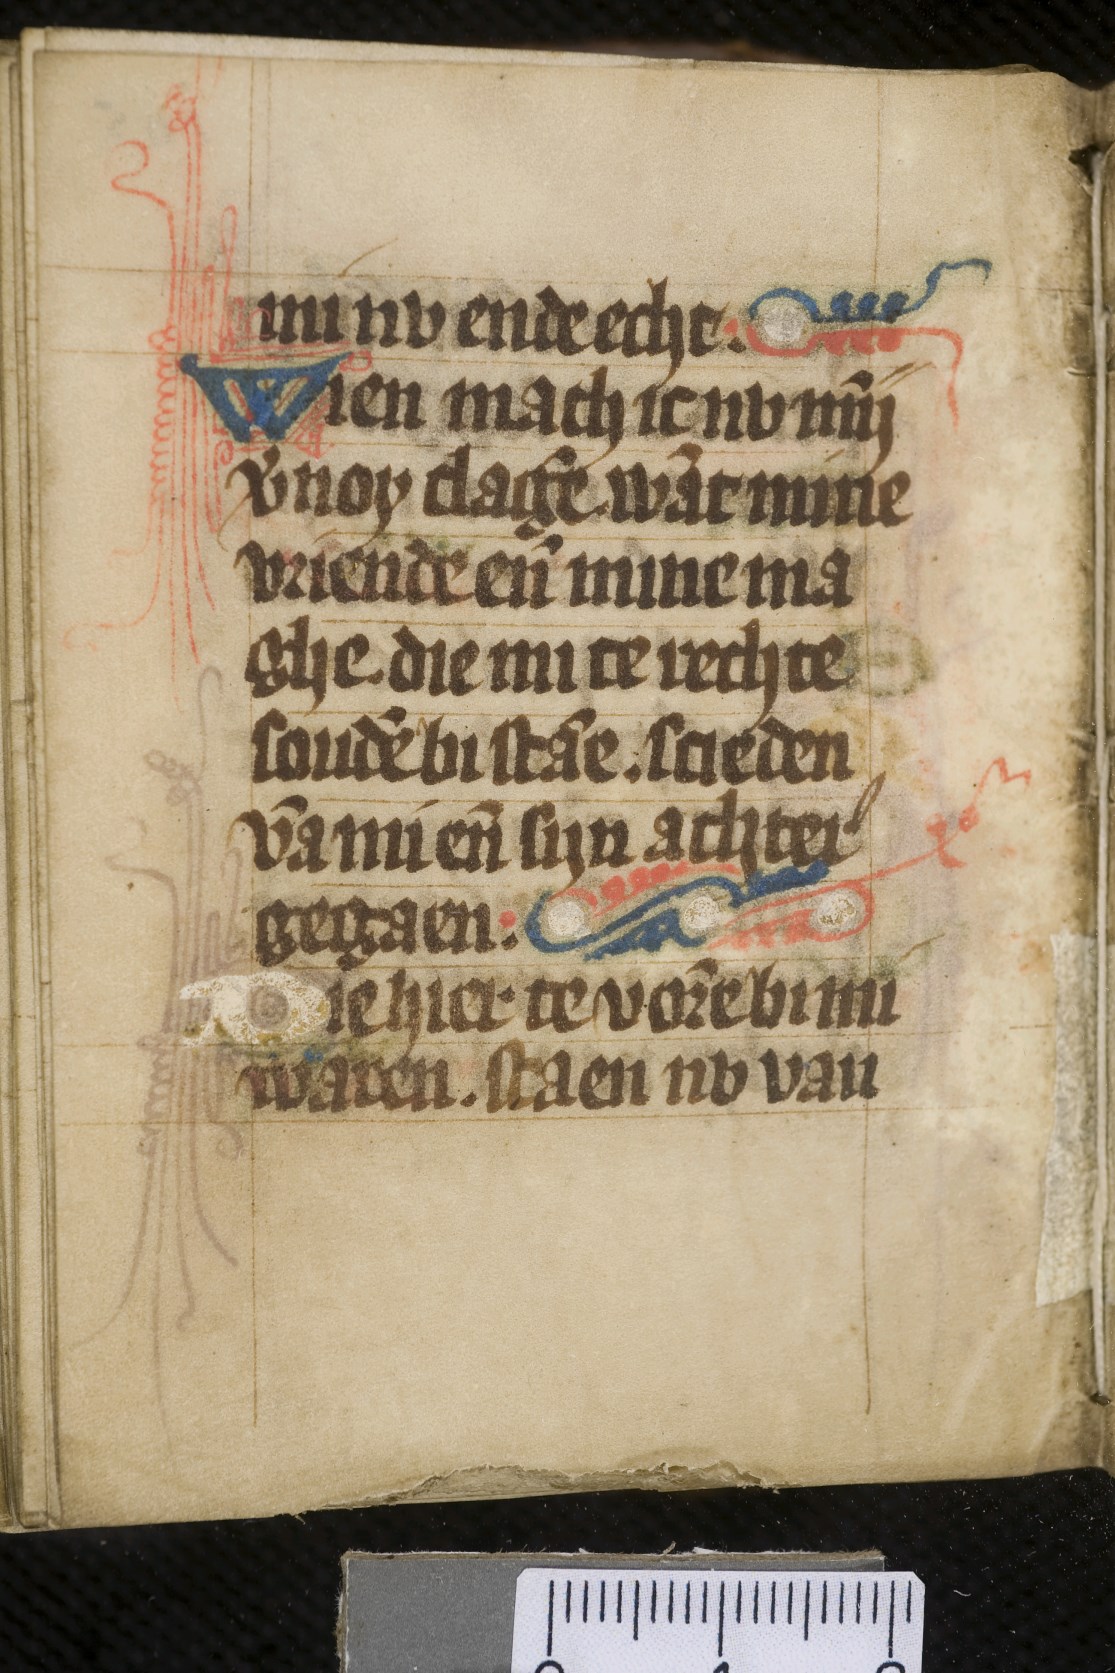 mi nv ende echt.
Wien mach ic nv mijn̄
v̄noy claḡe. wāt mine
vriende en̄ mine ma
ghe. die mi te rechte
soudē bi stāe. scieden
vā mi en̄ sijn achter
gegaen.
Die hier te vorē bi mi
waren. staen nv van
0 1 2